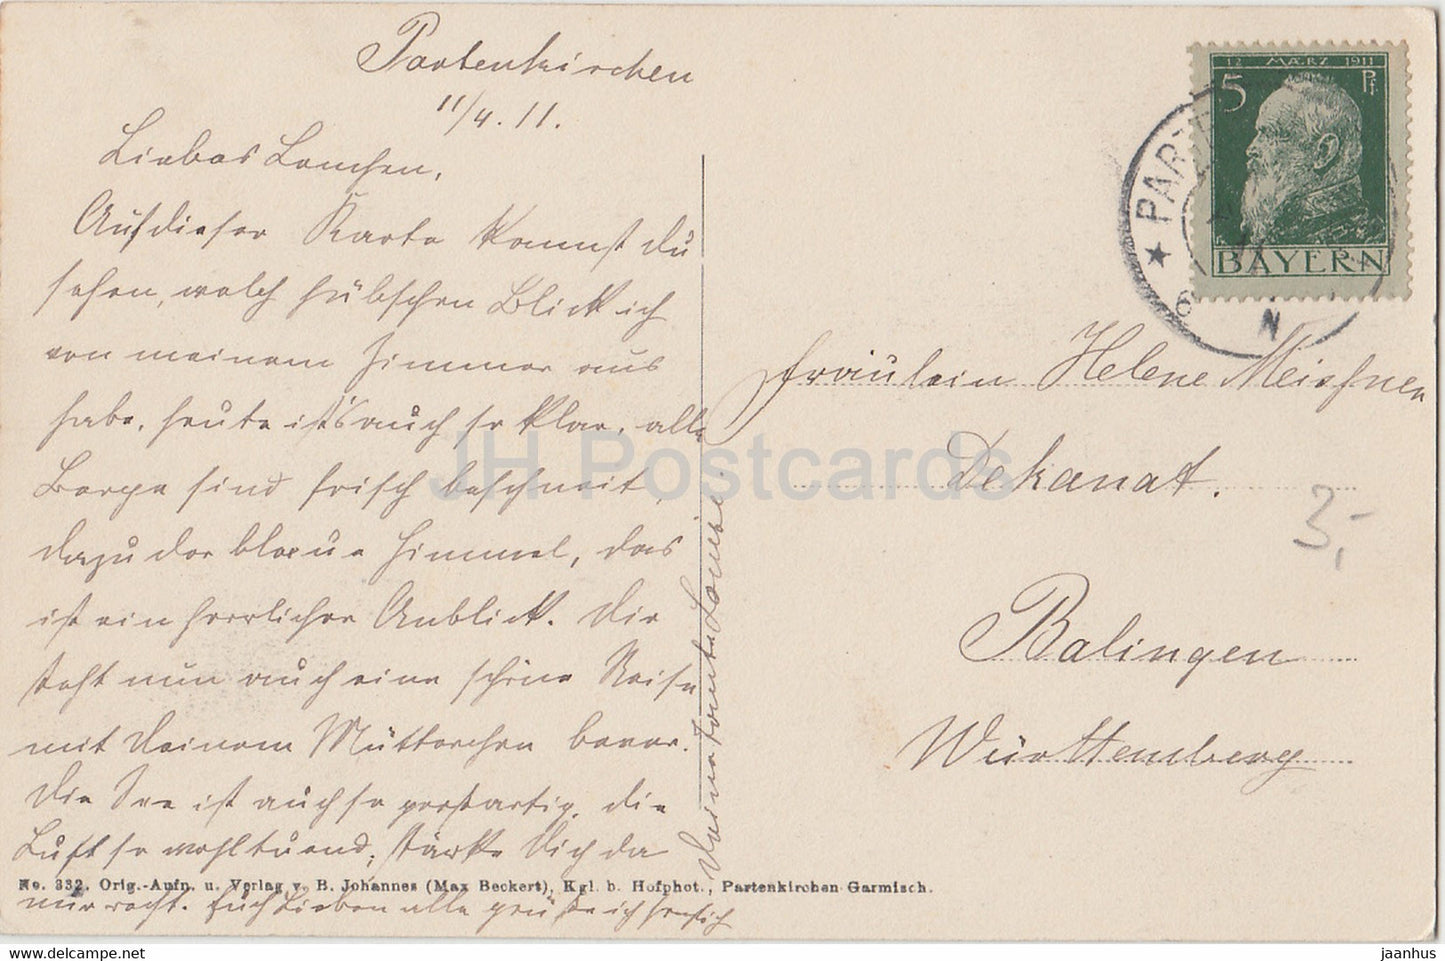 Partenkirchen
11/4.11.
Liebes Lenchen,
Auf dieser Karte kannst Du
sehen, welch hübschen Blick ich
von meinem Zimmer aus
habe, heute ist's auch so klar, alle
Berge sind frisch beschneit,
dazu der blaue Himmel, das
ist ein herrlicher Anblick. Dir
steht nun auch eine schöne Reise
mit Deinem Mütterchen bevor.
Die See ist auch so großartig, die
Luft so wohltuend, stärke Dich da
nur recht. Euch Lieben alle grüße ich herzlich
Deine Tante
12 MÆRZ 1911
5 Pf.
BAYERN
★ PART
N
Fräulein Helene Meissner
Dekanat.
3,-
Balingen
Württemberg
No. 332. Orig.-Aufn. u. Verlag v. B. Johannes (Max Beckert), Kgl. b. Hofphot., Partenkirchen-Garmisch.
JH Postcards
www.hippostcard.com
jaanhus